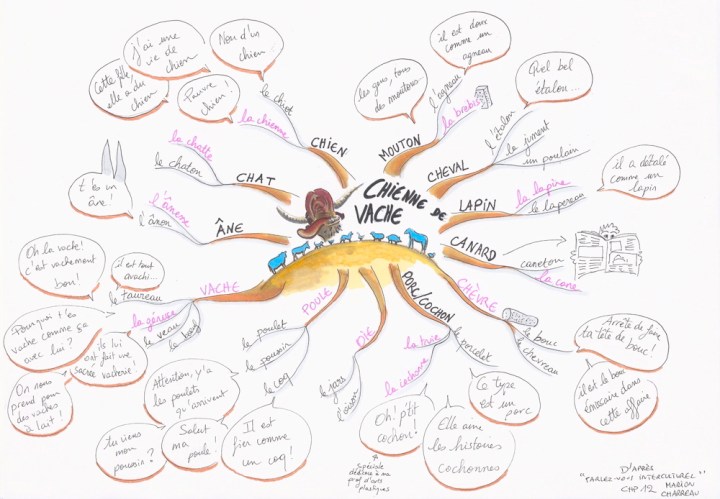 CHIENNE DE
VACHE
CHIEN
le chiot
la chienne
Nom d'un
chien
J'ai une
vie de
chien
Cette fille,
elle a du
chien
Pauvre
chien!
CHAT
la chatte
le chaton
ÂNE
l'ânesse
l'ânon
t'es un
âne!
VACHE
le taureau
la génisse
le veau
Oh la vache!
c'est vachement
bon!
il est tout
avachi...
Pourquoi t'es
vache comme ça
avec lui?
ils lui
ont fait une
sacrée vacherie!
On nous
prend pour
des vaches
à lait!
POULE
le poulet
le poussin
le coq
Attention, y'a
les poulets
qu'arrivent
tu viens
mon
poussin?
Salut
ma
poule!
Il est
fier comme
un coq!
OIE
le jars
l'oison
PORC/COCHON
la truie
la cochonne
le porcelet
Oh! p'tit
cochon!
Spéciale
dédicace à ma
prof d'arts
plastiques
Elle aime
les histoires
cochonnes
Ce type
est un
porc
CHÈVRE
le bouc
le chevreau
Arrête de faire
ta tête de bouc!
il est le bouc
émissaire dans
cette affaire
CANARD
caneton
la cane
LAPIN
la lapine
le lapereau
il a détalé
comme un
lapin
CHEVAL
l'étalon
la jument
un poulain
Quel bel
étalon...
MOUTON
l'agneau
la brebis
les gens, tous
des moutons.
il est doux
comme un
agneau
D'APRÈS
"PARLEZ-VOUS INTERCULTUREL"
CHP 12 MARION
CHARREAU